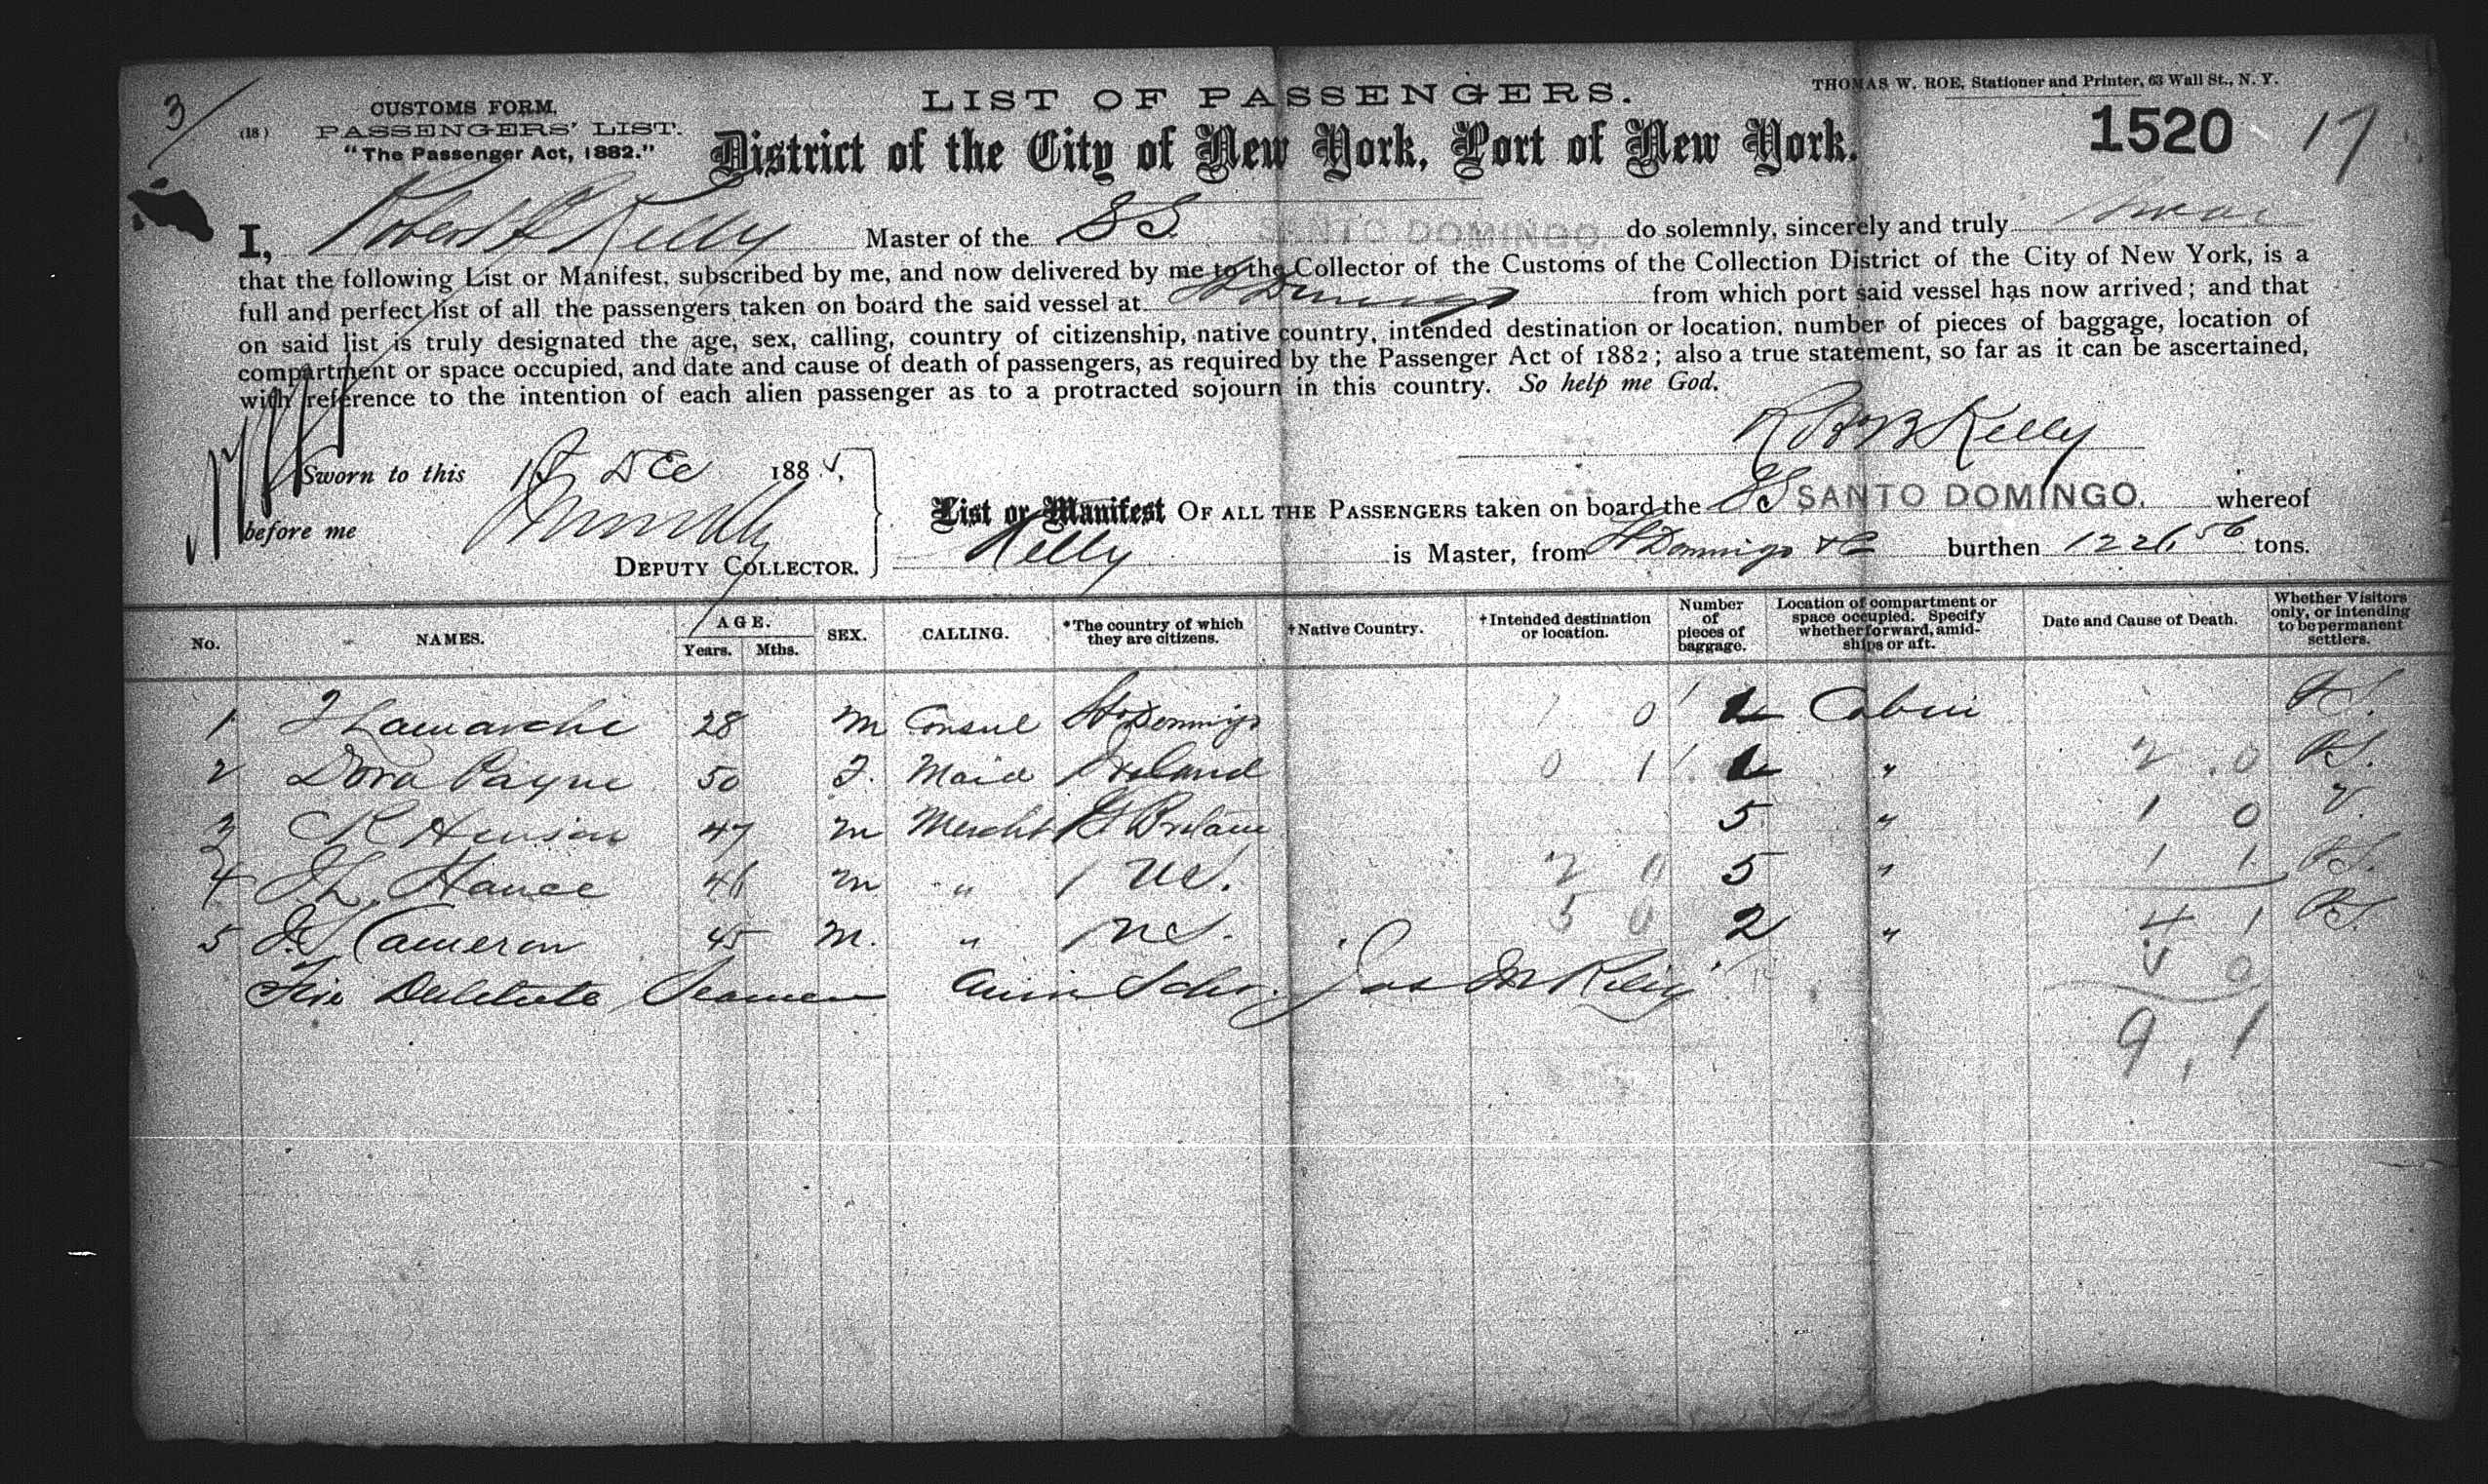 3
CUSTOMS FORM.
(18) PASSENGERS' LIST.
"The Passenger Act, 1882."
LIST OF PASSENGERS.
THOMAS W. ROE, Stationer and Printer, 63 Wall St., N. Y.
District of the City of New York, Port of New York.
1520 17
I, Robert B Kelly Master of the SS SANTO DOMINGO do solemnly, sincerely and truly swear
that the following List or Manifest, subscribed by me, and now delivered by me to the Collector of the Customs of the Collection District of the City of New York, is a
full and perfect list of all the passengers taken on board the said vessel at St Domingo from which port said vessel has now arrived; and that
on said list is truly designated the age, sex, calling, country of citizenship, native country, intended destination or location, number of pieces of baggage, location of
compartment or space occupied, and date and cause of death of passengers, as required by the Passenger Act of 1882; also a true statement, so far as it can be ascertained,
with reference to the intention of each alien passenger as to a protracted sojourn in this country. So help me God.
Kelly
Sworn to this Dec 188
before me
DEPUTY COLLECTOR.
List or Manifest OF ALL THE PASSENGERS taken on board the SS SANTO DOMINGO. whereof
Kelly is Master, from St Domingo burthen tons.
No. NAMES. AGE. Years. Mths. SEX. CALLING. *The country of which they are citizens. †Native Country. †Intended destination or location. Number of pieces of baggage. Location of compartment or space occupied. Specify whether forward, amidships or aft. Date and Cause of Death. Whether Visitors only, or intending to be permanent settlers.
1 Lamarche 28 M Consul St Domingo 1 0 Cabin
2 Dora Payne 50 F. Maid Ireland 0 1 " 2 0
3 47 M Mercht Gt Britain 5 " 1 0 V.
4 Hance M " U.S. 2 0 5 " 1 1
5 Cameron 45 M. " U.S. 5 0 2 " 4 1
Five Destitute Seamen Schr. Jas
9, 1